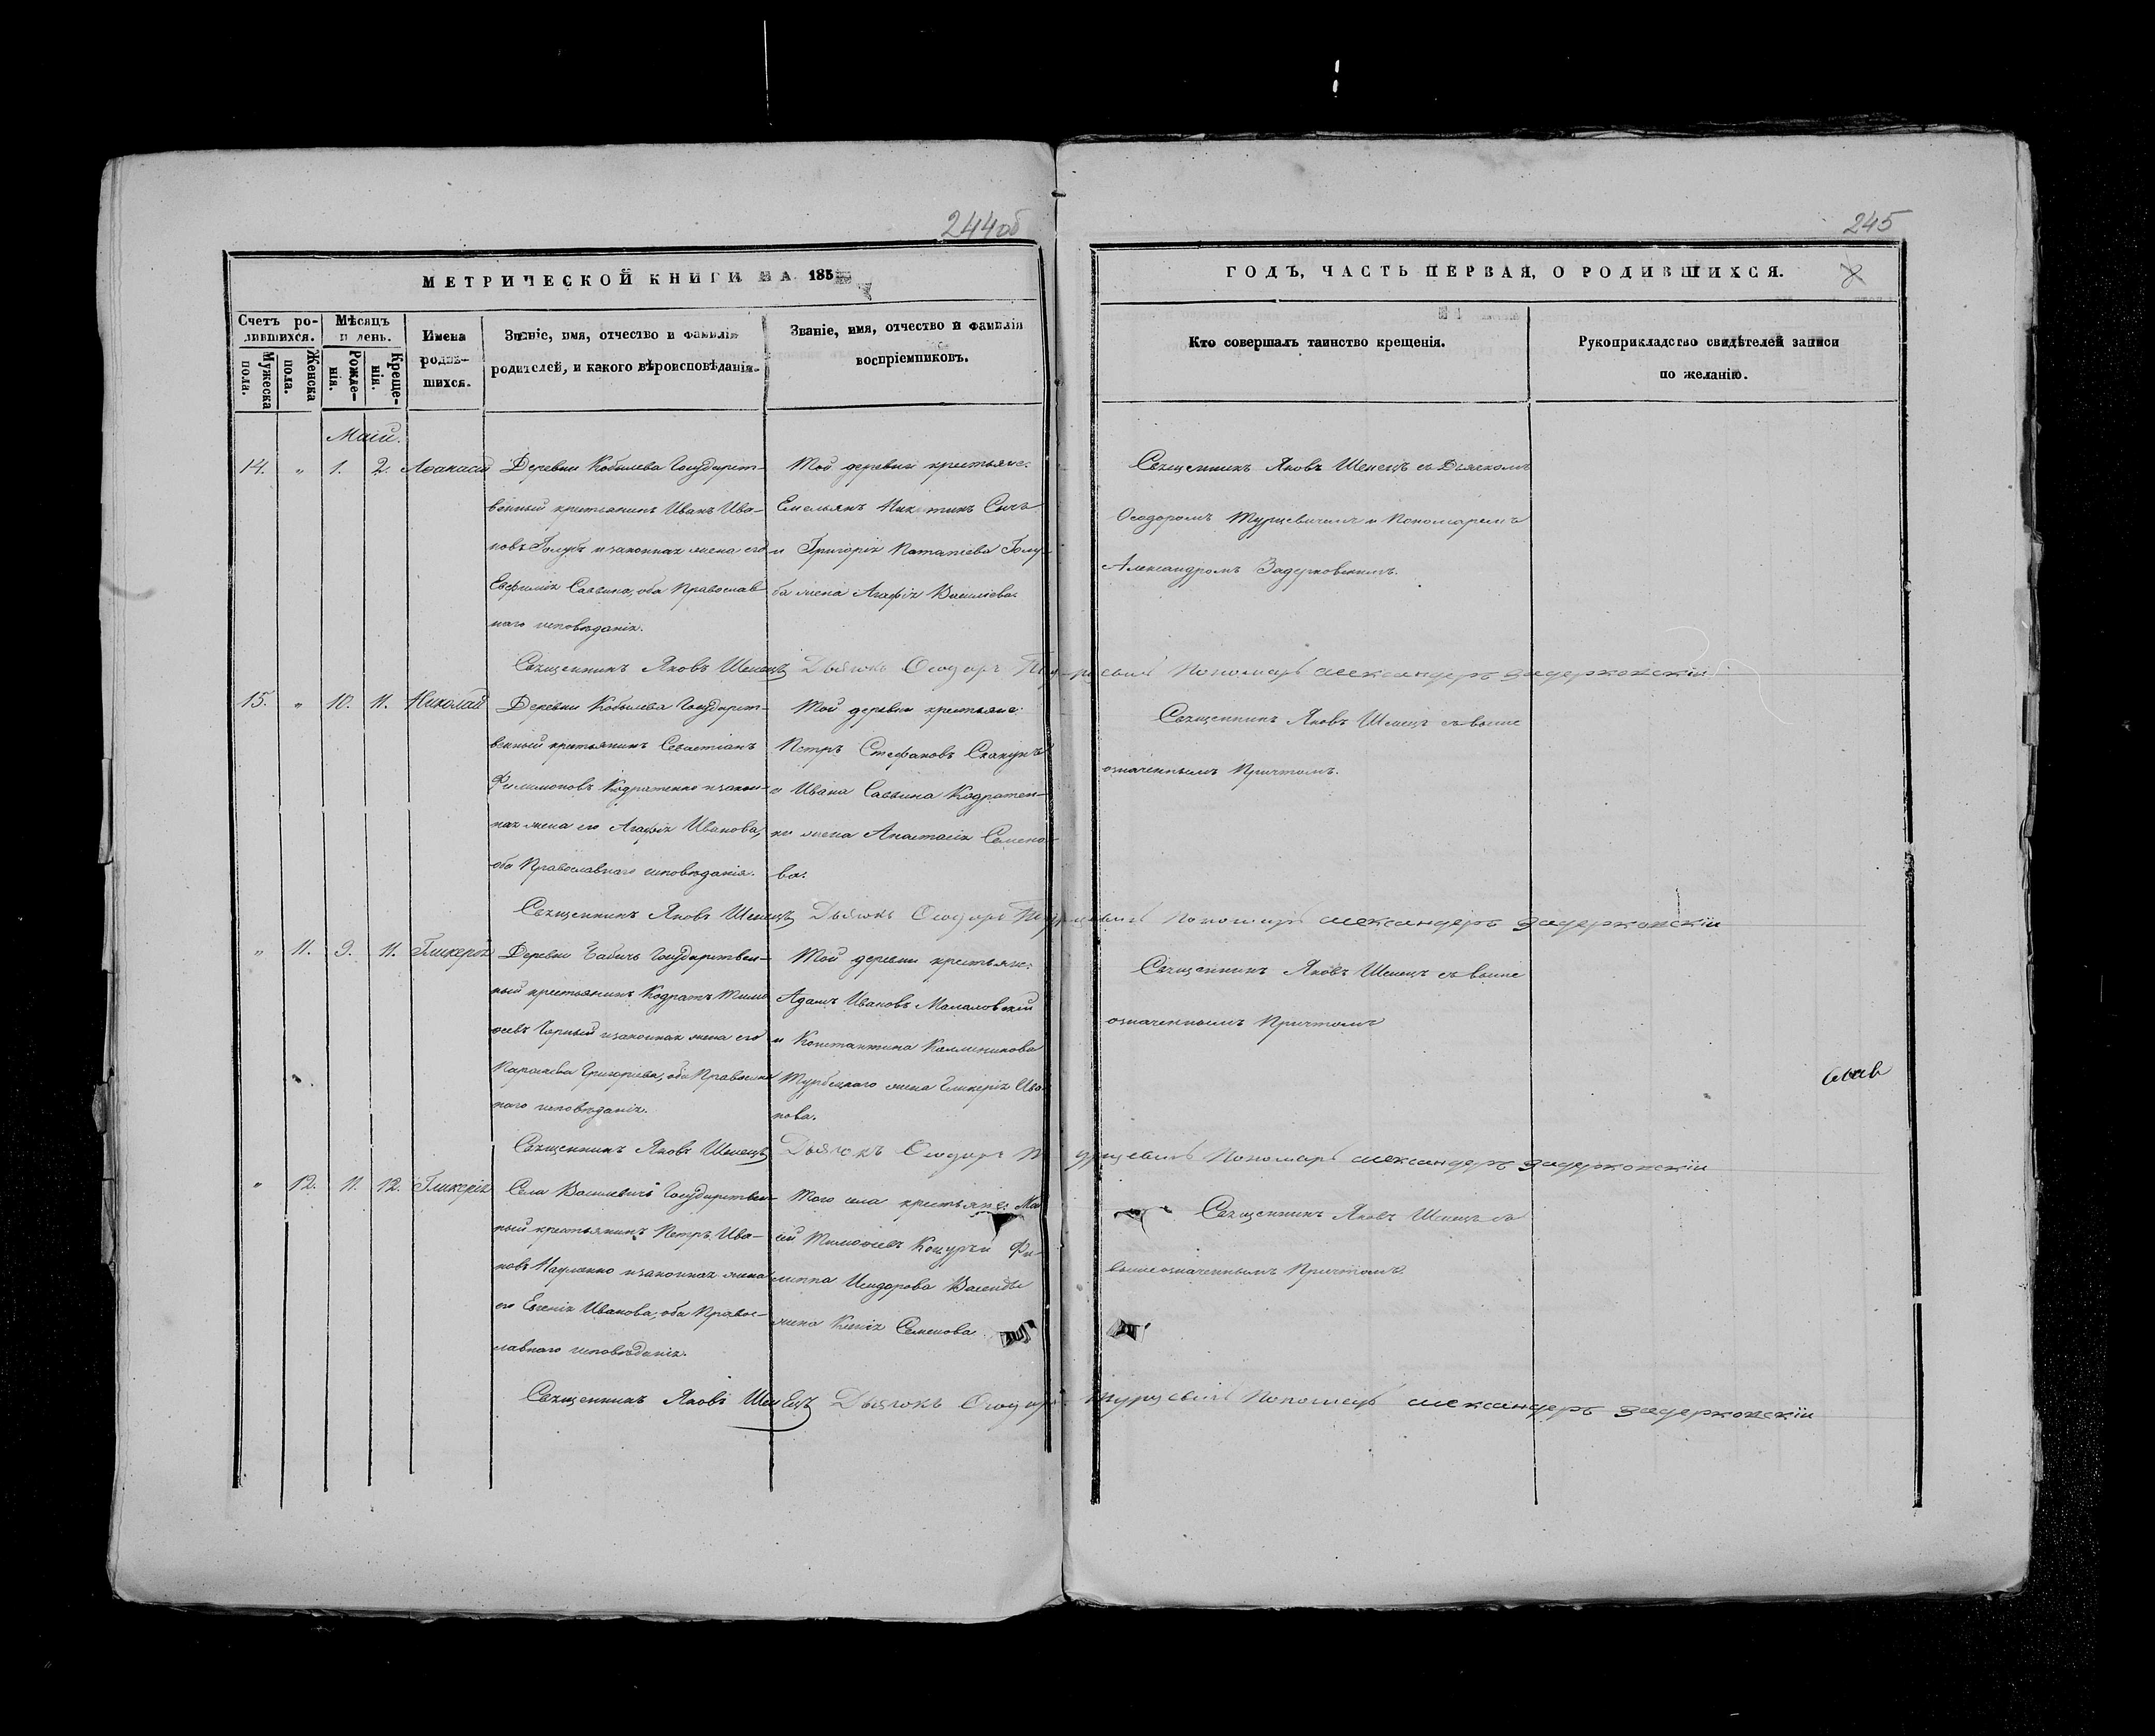 244об
МЕТРИЧЕСКОЙ КНИГИ НА 185
Счетъ ро-
дившихся.
Мужеска
пола.
Женска
пола.
Мѣсяцъ
и день.
Рожде-
нія.
Креще-
нія.
Имена
родив-
шихся.
Званіе, имя, отчество и фамилія
родителей, и какого вѣроисповѣданія.
Званіе, имя, отчество и фамилія
воспріемниковъ.
Маій.
14. " 1. 2. Аѳанасій
Деревни Кобылева Государст-
венный крестьянинъ Иванъ Ива-
новъ Голубъ и законная жена его
Евфимія Саввина, оба Православ
наго исповѣданія.
Той деревни крестьяне:
Емельянъ Никитинъ Сычъ
и Григорія Потапіева Голу-
ба жена Агафія Василіева.
Священникъ Яковъ Шенецъ Дьячокъ Ѳеодоръ Турцевичъ Пономарь александеръ задерковскій
15. " 10. 11. Николай
Деревни Кобылева Государст-
венный крестьянинъ Севастіанъ
Филимоновъ Кодратенко и закон-
ная жена его Агафія Иванова,
оба Православнаго исповѣданія.
Той деревни крестьяне:
Петръ Стефановъ Скакунъ
и Ивана Саввина Кодратен-
ка жена Анастасія Семено-
ва.
Священникъ Яковъ Шенецъ Дьячокъ Ѳеодоръ Турцевичъ Пономарь александеръ задерковскій
" 11. 9. 11. Гликерія
Деревни Бабичъ Государствен-
ный крестьянинъ Кодратъ Тимо
ѳеевъ Чорный и законная жена его
Григоріева, оба Правосла
наго исповѣданія.
Той деревни крестьяне:
Адамъ Ивановъ
и Константина Каллиникова
жена Гликерія Ива-
нова.
Священникъ Яковъ Шенецъ Дьячокъ Ѳеодоръ Турцевичъ Пономарь александеръ задерковскій
" 12. 11. 12. Гликерія
Села Василевичъ Государствен-
ный крестьянинъ Петръ Ива-
новъ Науменко и законная жена
его Евгенія Иванова, оба Правос-
лавнаго исповѣданія.
Того села крестьяне: Мои
сей Тимоѳеевъ и Фи-
липпа Исидорова
жена Ксенія Семенова.
Священникъ Яковъ Шенецъ Дьячокъ Ѳеодоръ Турцевичъ Пономарь александеръ задерковскій
245
ГОДЪ, ЧАСТЬ ПЕРВАЯ, О РОДИВШИХСЯ.
Кто совершалъ таинство крещенія.
Рукоприкладство свидѣтелей записи
по желанію.
Священникъ Яковъ Шенецъ съ Дьячкомъ
Ѳеодоромъ Турцевичемъ и Пономаремъ
Александромъ Задерковскимъ.
Священникъ Яковъ Шенецъ съ выше
означеннымъ Причтомъ.
Священникъ Яковъ Шенецъ съ выше
означеннымъ Причтомъ
Священникъ Яковъ Шенецъ съ
вышеозначеннымъ Причтомъ.